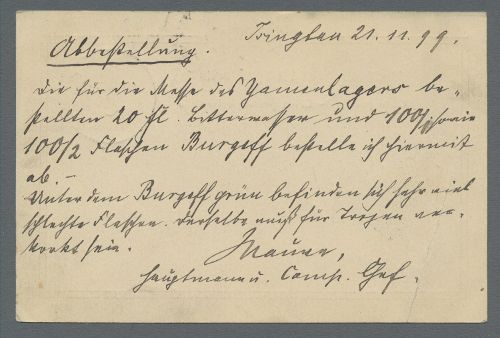 Tsingtau 21.11.99.
Abbestellung.
Die für die Messe des Yamenlagers be-
stellten 20 Fl. Bitterwasser und 100/1 sowie
100/2 Flaschen Burgeff bestelle ich hiermit
ab. -
Unter dem Burgeff grün befinden sich sehr viel
schlechte Flaschen. Derselbe muß für Tropen ver-
korkt sein.
Mauve,
Hauptmann u. Comp. Chef.